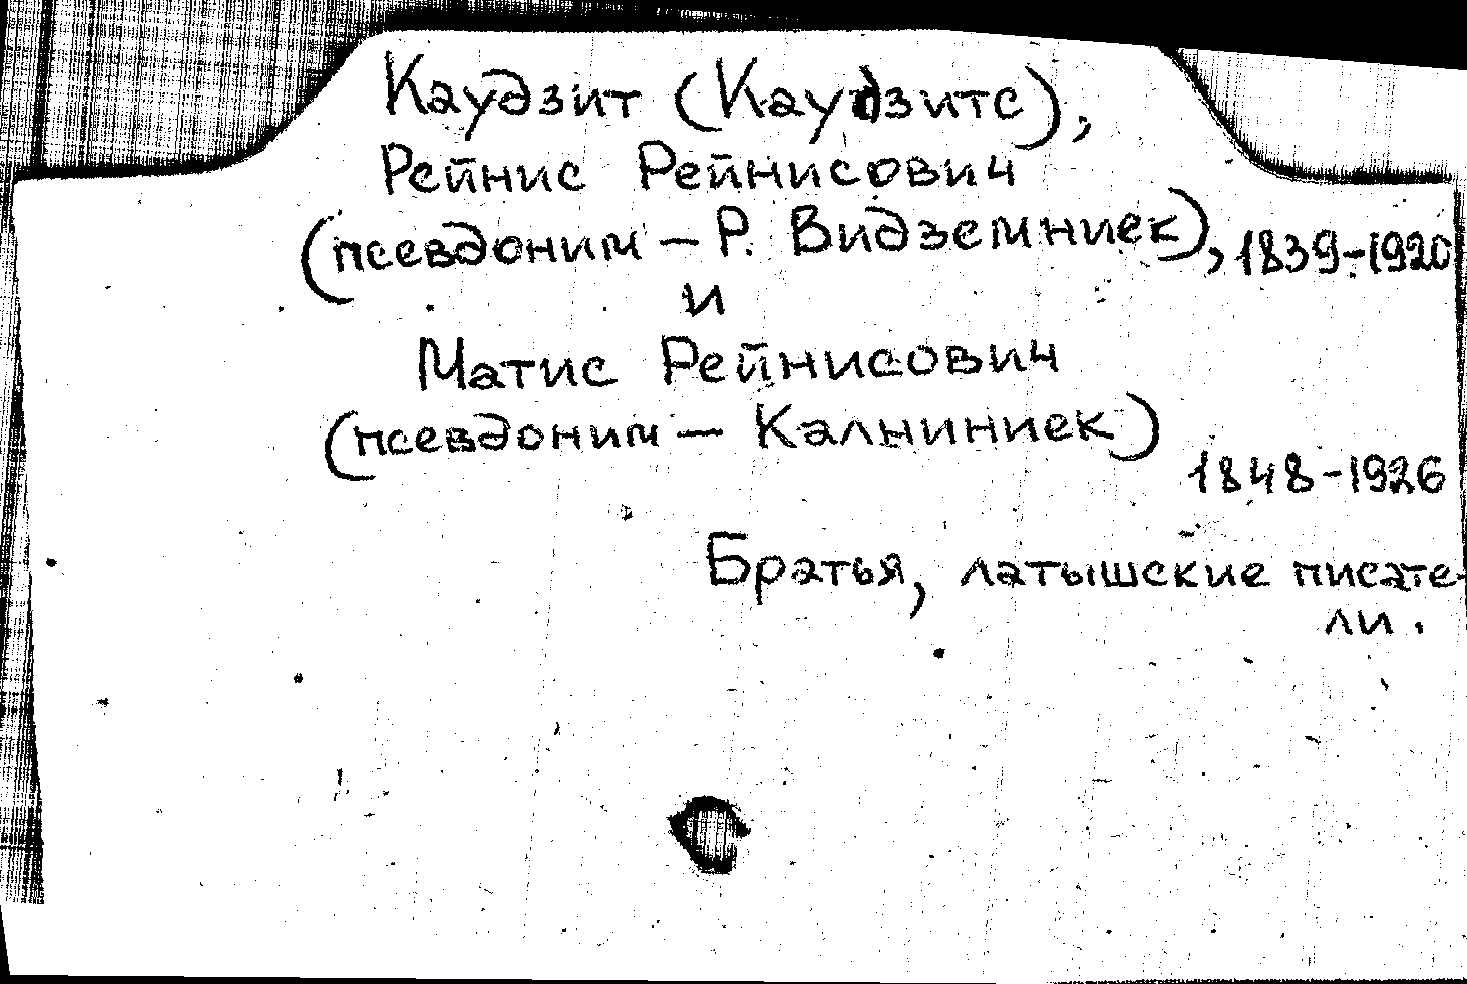 Каудзит (Каудзитс),
Рейнис Рейнисович
(псевдоним – Р. Видземниек), 1839-1920
и
Матис Рейнисович
(псевдоним – Калниниек)
1848-1926
Братья, латышские писате-
ли.